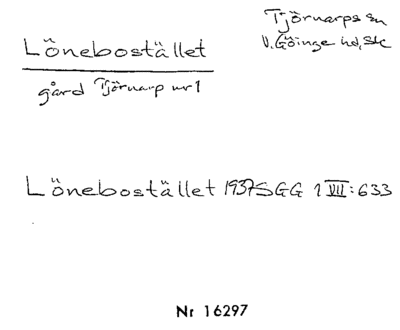 Tjörnarps sn
Lönebostället
V. Göinge hd, Sk
gård Tjörnarp nr 1
Lönebostället 1937 SGG 1 VII:633
Nr 16297